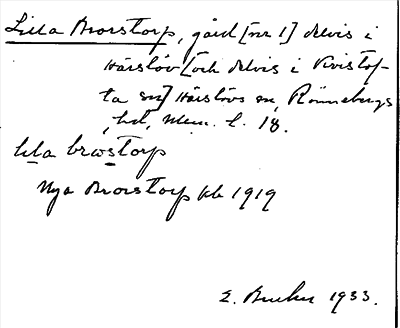 Lilla Brorstorp, gård [nr 1] delvis i
Härslöv [och delvis i Kvistof-
ta sn] Härslövs sn, Rönnebergs
hd, Mem. l. 18.
lila brostorp
Nya Brorstorp kb 1919
E. 1933.